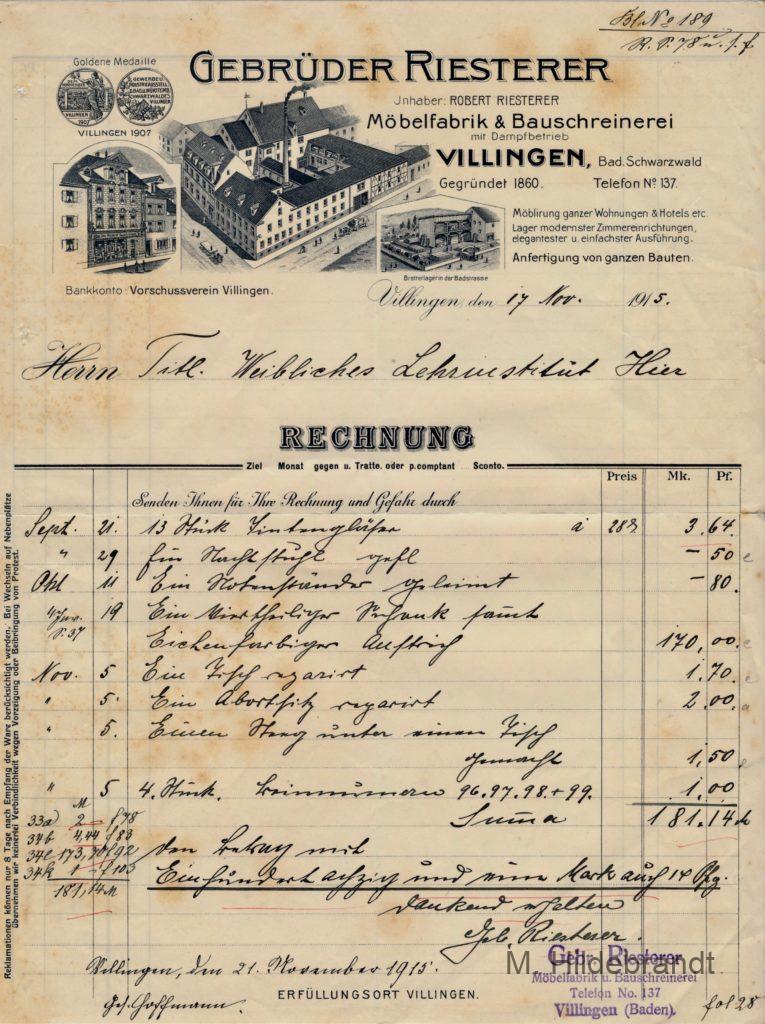 Bl. No 189
R. P. 78 u. f. f
Goldene Medaille
VILLINGEN 1907
GEBRÜDER RIESTERER
Jnhaber: ROBERT RIESTERER
Möbelfabrik & Bauschreinerei
mit Dampfbetrieb
VILLINGEN, Bad. Schwarzwald
Gegründet 1860. Telefon No 137.
Möblirung ganzer Wohnungen & Hotels etc.
Lager modernster Zimmereinrichtungen,
elegantester u. einfachster Ausführung.
Anfertigung von ganzen Bauten.
Bretterlager in der Badstrasse
Bankkonto: Vorschussverein Villingen.
Villingen den 17 Nov. 1915.
Herrn Titl. Weibliches Lehrinstitüt Hier
RECHNUNG
Ziel Monat gegen u. Tratte. oder p. comptant Sconto.
Preis Mk. Pf.
Senden Ihnen für Ihre Rechnung und Gefahr durch
Sept. 21. 13 Stück Tintengläser à 28 3.64
" 29 Ein Nachtstuhl gefl – 50
Okt 11 Ein Notenständer geleimt – 80.
19 Ein Viertheiliger Schrank samt
Eichenfarbiger Anstrich 170,00
Nov. 5 Ein Tisch reparirt 1.70
" 5. Ein Abortsitz reparirt 2.00
" 5. Einen Steg unter einen Tisch
gemacht 1,50
" 5 4. Stück. 96. 97. 98. + 99. 1.00
Suma 181.14
33a 2 – f 78
34b 4,44 f 83
34e 173,70 f 92
34k 1 – f 103
181,14 M
den Betrag mit
Einhundert achzig und eine Mark auch 14 Pfg.
dankend erhalten
Geb. Riesterer.
Villingen, den 21. November 1915.
Ges. Hoffmann.
ERFÜLLUNGSORT VILLINGEN.
Gebr. Riesterer
Möbelfabrik u. Bauschreinerei
Telefon No. 137
Villingen (Baden).
M. Hildebrandt
fol 28
Reklamationen können nur 8 Tage nach Empfang der Ware berücksichtigt werden. Bei Wechseln auf Nebenplätze
übernehmen wir keinerlei Verbindlichkeit wegen Vorzeigung oder Beibringung von Protest.